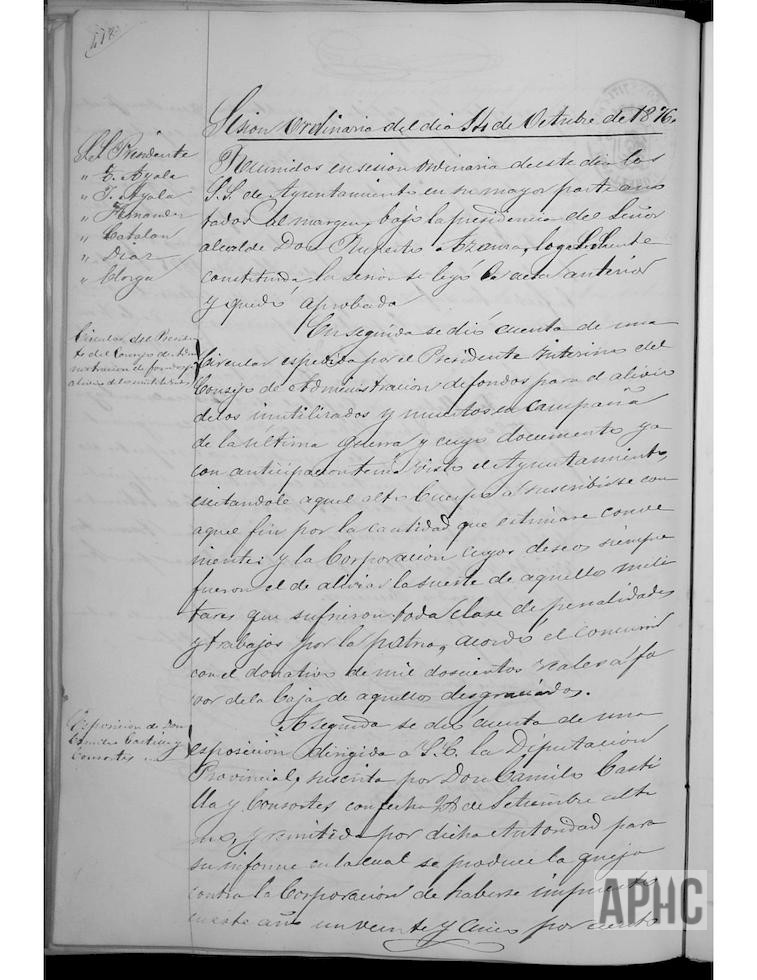 Sesion Ordinaria del dia 14 de Octubre de 1876.
S.S. Presidente
" E. Ayala
" T. Ayala
" Hernandez
" Catalan
" Diaz
" Clorga
Reunidos en sesion ordinaria de este dia los
S.S. de Ayuntamiento en su mayor parte ano
tados al margen, bajo la presidencia del Señor
alcalde Don Ruperto Azcona, legalmente
constituida la sesion se leyó la acta anterior
y quedó aprobada
Circular del Presiden
te del Consejo de Admi
nistracion de fondos pa
alivio de los inutilizados
En seguida se dió cuenta de una
Circular espedida por el Presidente Interino del
Consejo de Administracion de fondos para el alivio
de los inutilizados y muertos en campaña
de la última guerra y cuyo documento ya
con anticipacion tenia visto el Ayuntamiento,
escitandole aquel alto Cuerpo al suscribirse con
aquel fin por la cantidad que estimare conve
niente; y la Corporacion cuyos deseos siempre
fueron el de aliviar la suerte de aquellos mili
tares que sufrieron toda clase de penalidades
y trabajos por la patria, acordó el concurrir
con el donativo de mil doscientos reales a fa
vor de la Caja de aquellos desgraciados.
Esposicion de Don
Camilo Castilla y
Consortes
A seguida se dió cuenta de una
esposicion dirigida a S.E. la Diputacion
Provincial, suscrita por Don Camilo Casti
lla y Consortes con fecha de Setiembre ulti
mo, y remitida por dicha Autoridad para
su informe en la cual se produce la queja
contra la Corporacion de haberse impuesto
en este año un veinte y cinco por ciento
APHC